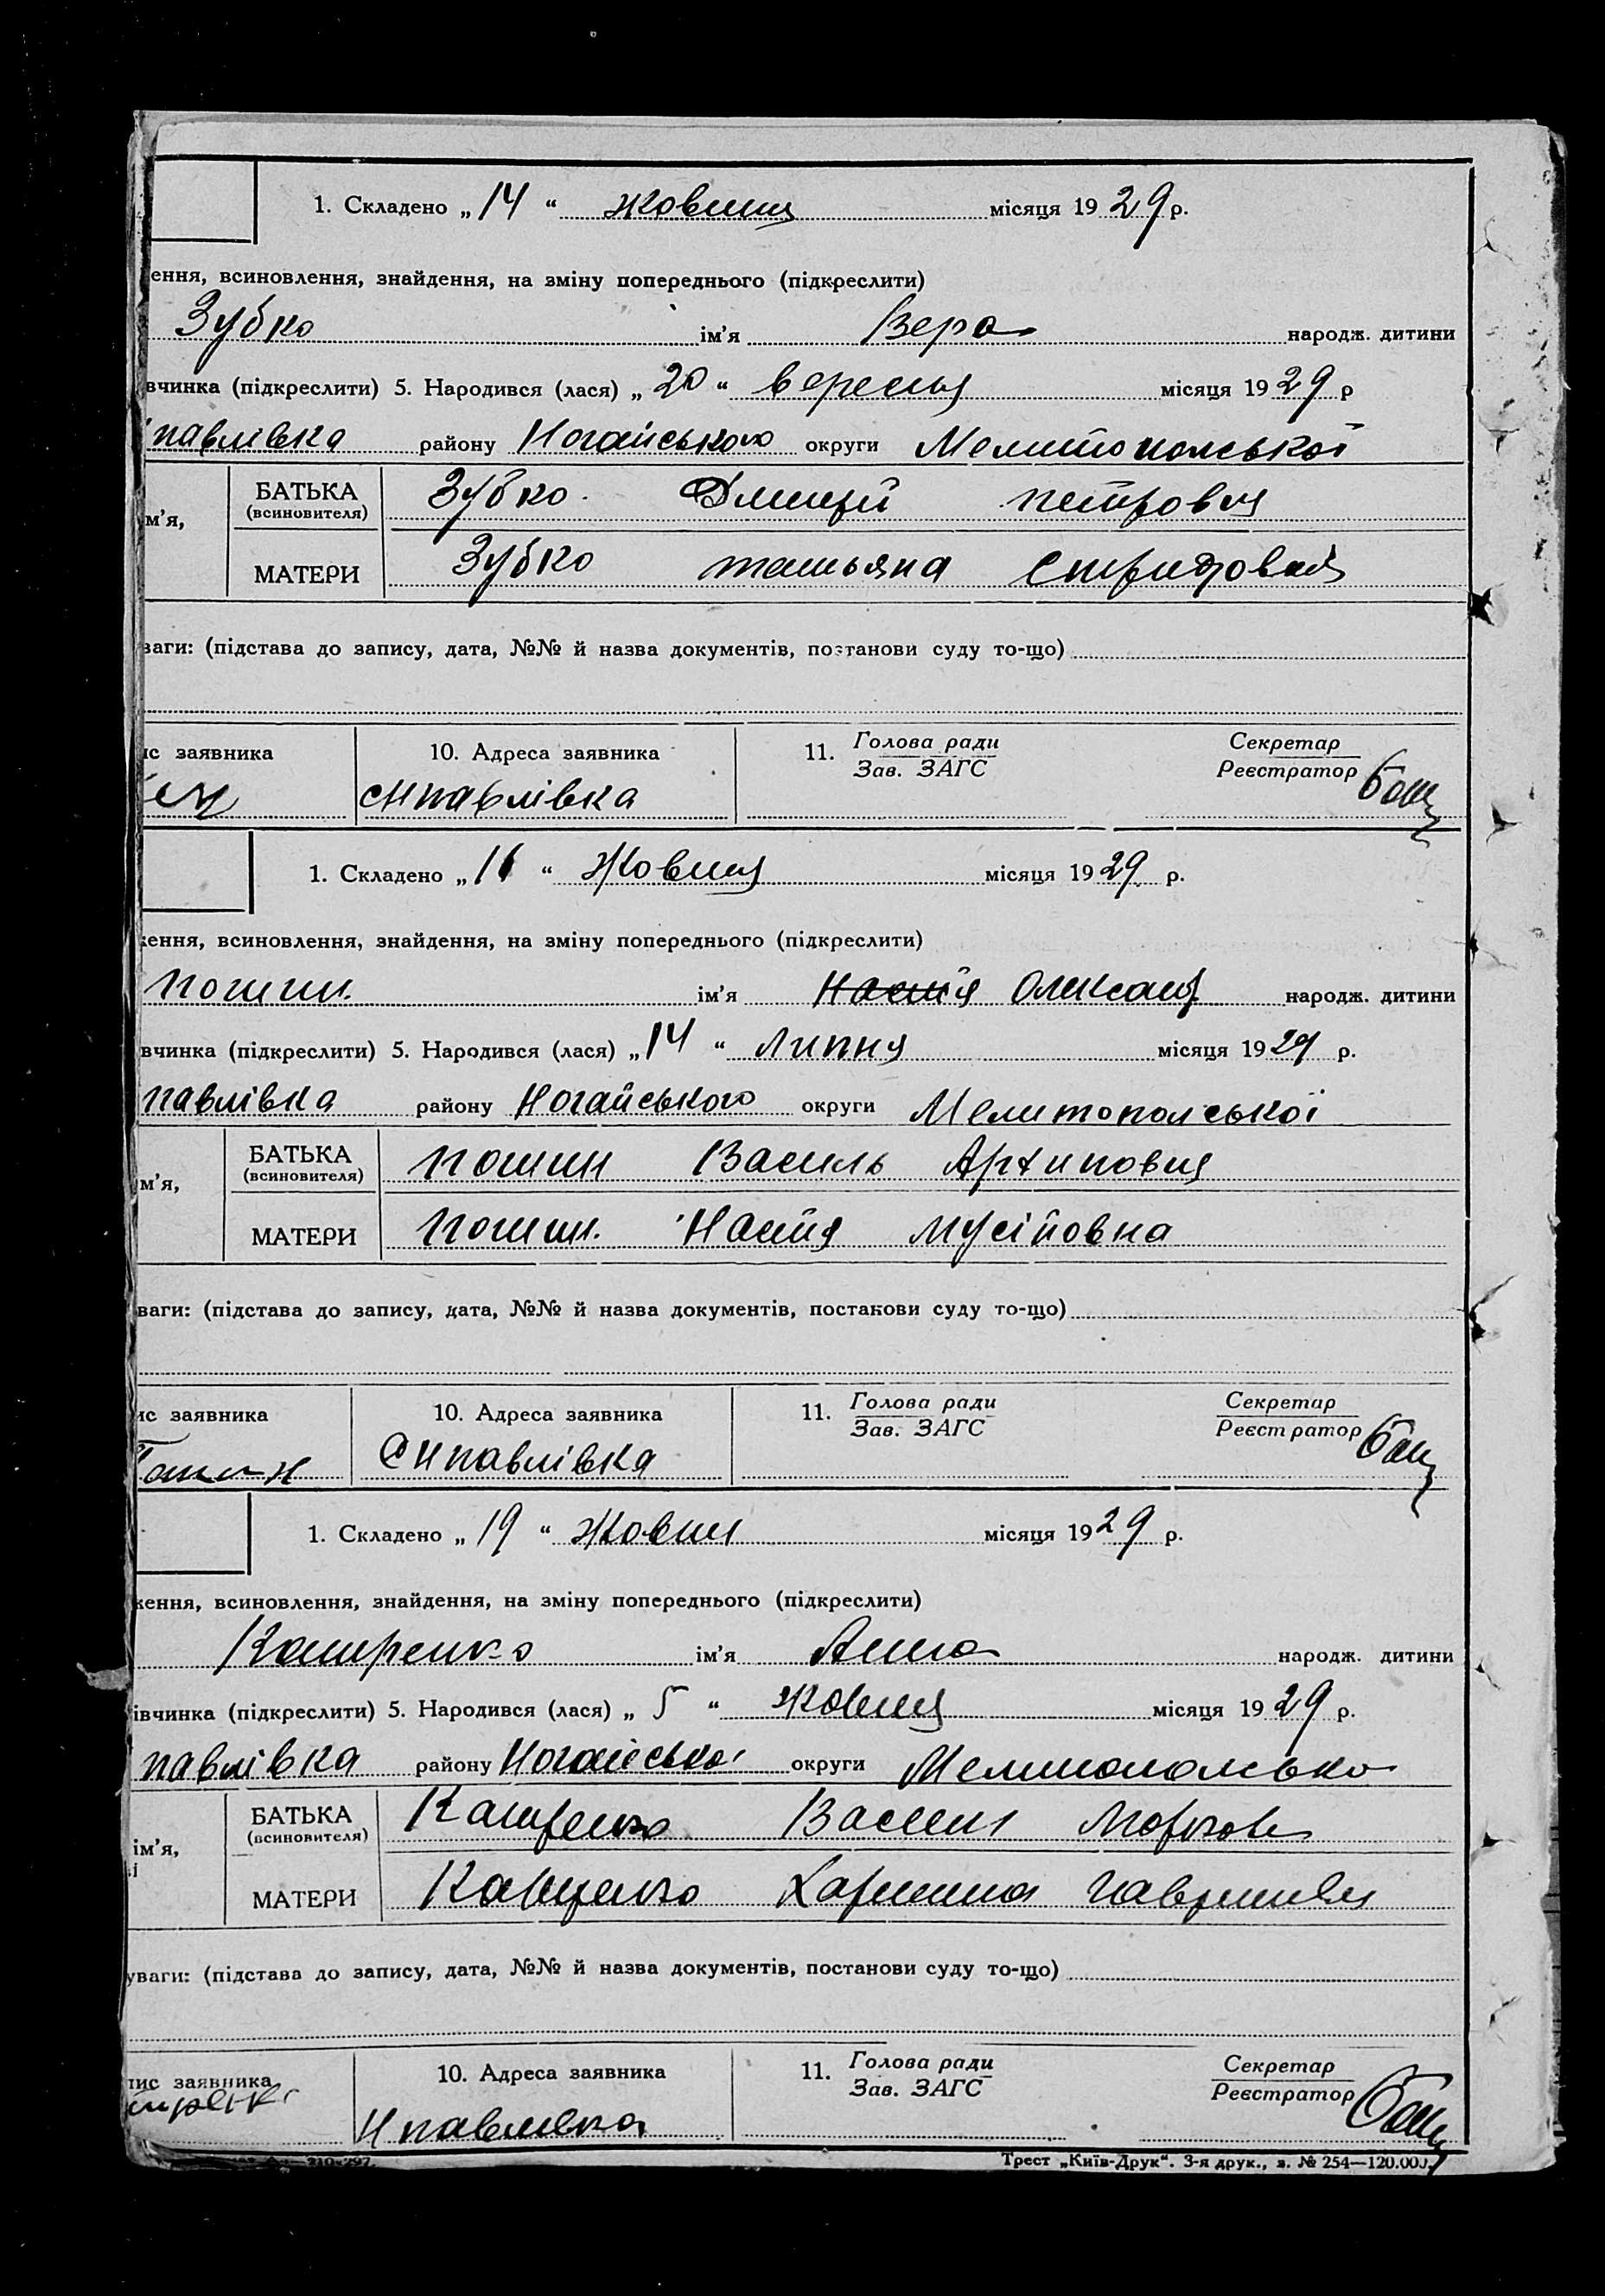 1. Складено „ 14 “ жовтня місяця 19 29 р.
ення, всиновлення, знайдення, на зміну попереднього (підкреслити)
Зубко ім’я Вера народж. дитини
вчинка (підкреслити) 5. Народився (лася) „ 20 “ вересня місяця 19 29 р
павлівка району Ногайського округи Мелитопольської
м’я, БАТЬКА (всиновителя) Зубко Дмитрій петрович
МАТЕРИ Зубко татьяна
ваги: (підстава до запису, дата, №№ й назва документів, постанови суду то-що)
ис заявника 10. Адреса заявника 11. Голова ради Секретар
Зав. ЗАГС Реєстратор
снпавлівка
1. Складено „ 16 “ Жовтня місяця 19 29 р.
ення, всиновлення, знайдення, на зміну попереднього (підкреслити)
пошин. ім’я Настя Олександ народж. дитини
вчинка (підкреслити) 5. Народився (лася) „ 14 “ Липня місяця 19 29 р.
павлівка району Ногайського округи Мелитопольської
м’я, БАТЬКА (всиновителя) пошин Василь Архипович
МАТЕРИ пошин. Настя мусіївовна
ваги: (підстава до запису, дата, №№ й назва документів, постанови суду то-що)
ис заявника 10. Адреса заявника 11. Голова ради Секретар
Зав. ЗАГС Реєстратор
СНпавлівка
1. Складено „ 19 “ Жовтн місяця 19 29 р.
ження, всиновлення, знайдення, на зміну попереднього (підкреслити)
Катренко ім’я Анна народж. дитини
івчинка (підкреслити) 5. Народився (лася) „ 5 “ Жовтня місяця 19 29 р.
павлівка району Ногайської округи Мелитопольсько
ім’я, БАТЬКА (всиновителя) Катренко Василь
МАТЕРИ Катренко
уваги: (підстава до запису, дата, №№ й назва документів, постанови суду то-що)
пис заявника 10. Адреса заявника 11. Голова ради Секретар
Зав. ЗАГС Реєстратор
Нпавлівка
Трест „Київ-Друк“. 3-я друк., з. № 254—120.000.